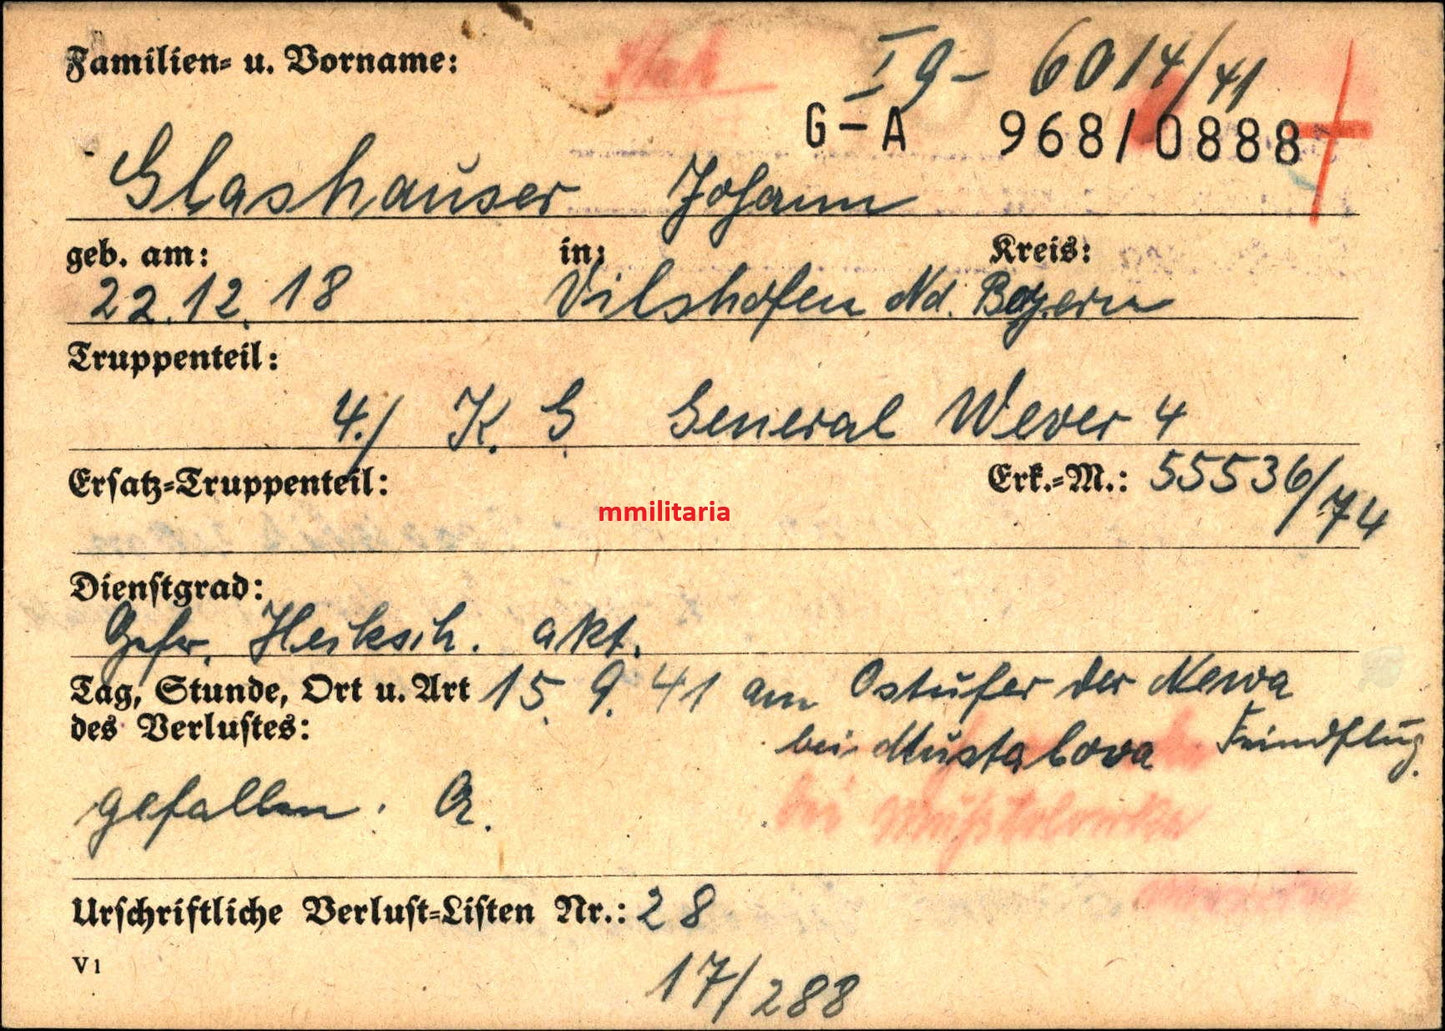 Familien- u. Vorname:
I g - 6014/41
G-A 968/0888
Glashauser Johann
geb. am: in: Kreis:
22.12.18 Vilshofen Nd. Bayern
Truppenteil:
4./ K. G. General Wever 4
Ersatz-Truppenteil: Erk.-M.: 55536/74
mmilitaria
Dienstgrad:
Gefr. akt.
Tag, Stunde, Ort u. Art 15.9.41 am Ostufer der Newa
des Verlustes: bei Mustalova Feindflug.
gefallen. A.
bei
Urschriftliche Verlust-Listen Nr.: 28
V1
17/288